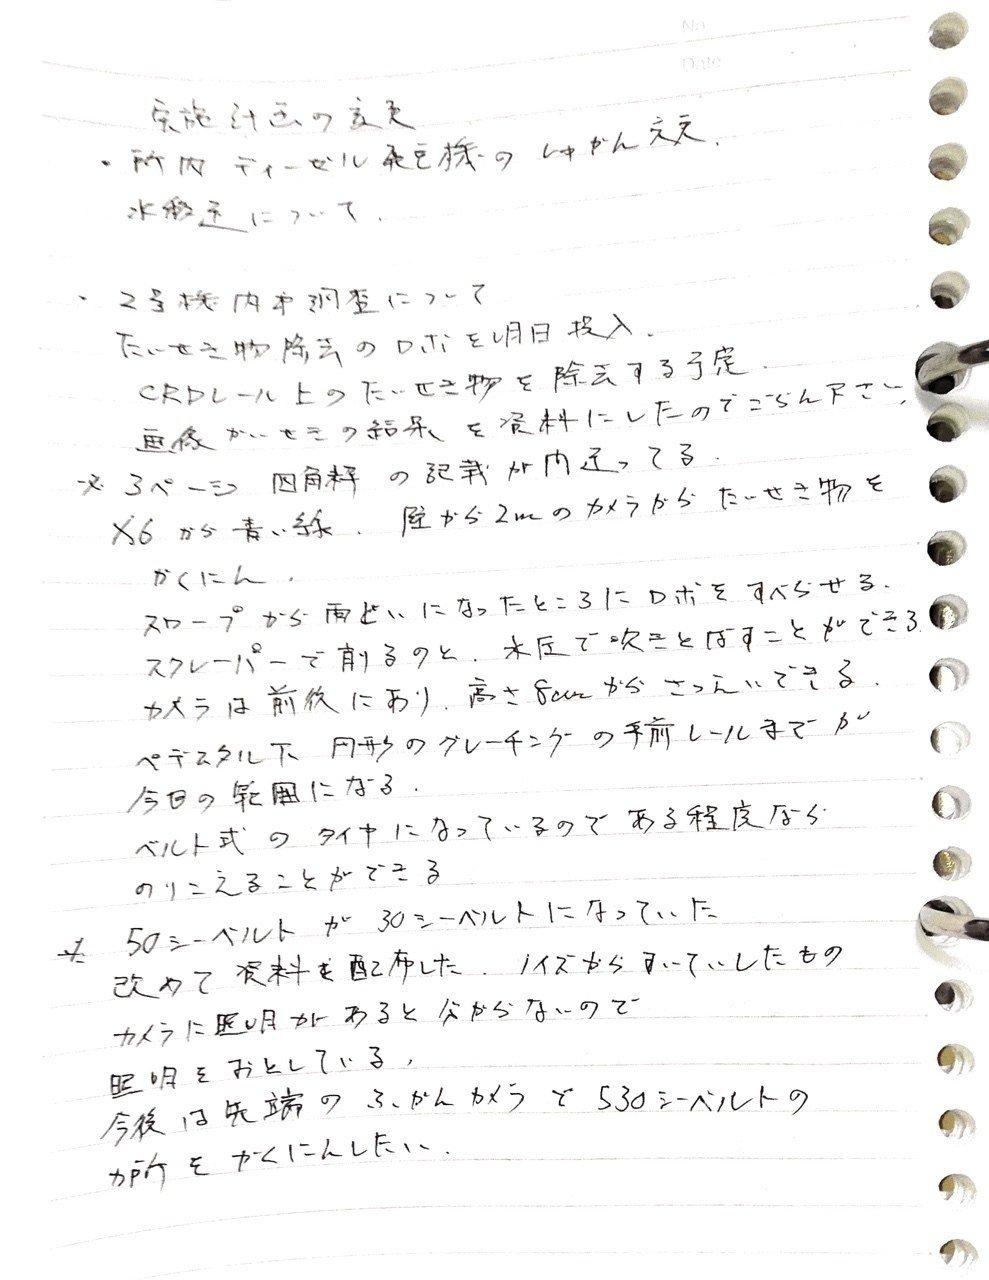 No
Date
実施計画の変更
・所内 ディーゼル発電機の しゃかん
水移送について.
・2号機内部調査について
たいせき物除去のロボを明日投入.
CRDレール上のたいせき物を除去する予定.
画像かいせきの結果を資料にしたのでごらん下さい,
※ 3ページ 四角枠の記載が間違ってる.
X6から青い線. 座から2mのカメラからたいせき物を
かくにん.
スロープから雨どいになったところにロボをすべらせる.
スクレーパーで削るのと, 水圧で吹きとばすことができる
カメラは前後にあり, 高さ8cmからさつえいできる.
ペデスタル下 円形のグレーチングの手前レールまでが
今日の範囲になる.
ベルト式のタイヤになっているのである程度なら
のりこえることができる
※ 50シーベルトが30シーベルトになっていた
改めて資料を配布した. ノイズからすいていしたもの
カメラに照明があると分からないので
照明をおとしている,
今後は先端のふかんカメラで530シーベルトの
か所をかくにんしたい.